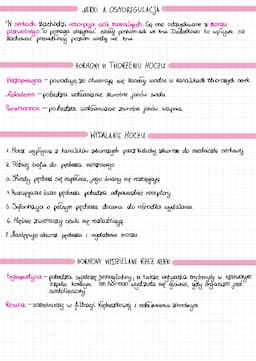 NERKI A OSMOREGULACJA
W nerkach zachodzi resorpcja soli mineralnych. Są one odzyskiwane z moczu
pierwotnego. To pomaga utrzymać stały poziom soli we krwi. Dodatkowo to wpływa na
zachowanie prawidłowej poziom wody we krwi.
HORMONY W TWORZENIU MOCZU
Wazopresyna - powoduje, że otwierają się kanały wodne w kanalikach zbiorczych nerek
Aldosteron - pobudza wchłanianie zwrotne jonów sodu
Parathormon - pobudza wchłanianie zwrotne jonów wapnia
WYDALANIE MOCZU
1. Mocz wypływa z kanalików zbiorczych przez kielichy nerkowe do miedniczki nerkowej
2. Później trafia do pęcherza moczowego
3. Kiedy pęcherz się napełnia, jego ściany się rozciągają
4. Rozciąganie ścian pęcherza pobudza odpowiednie receptory
5. Informacja o pełnym pęcherzu dociera do ośrodka wydalania
6. Mięśnie zwieraczy cewki się rozluźniają
7. Następuje skurcz pęcherza i wydalenie moczu
HORMONY WYDZIELANE PRZEZ NERKI
Erytropoetyna - pobudza syntezę hemoglobiny, a także wytwarza erytrocyty w czerwonym
szpiku kostnym. Ten hormon wydziela się głównie, gdy organizm jest
niedotleniony
Renina - uczestniczy w filtracji kłębuszkowej i wchłanianiu zwrotnym